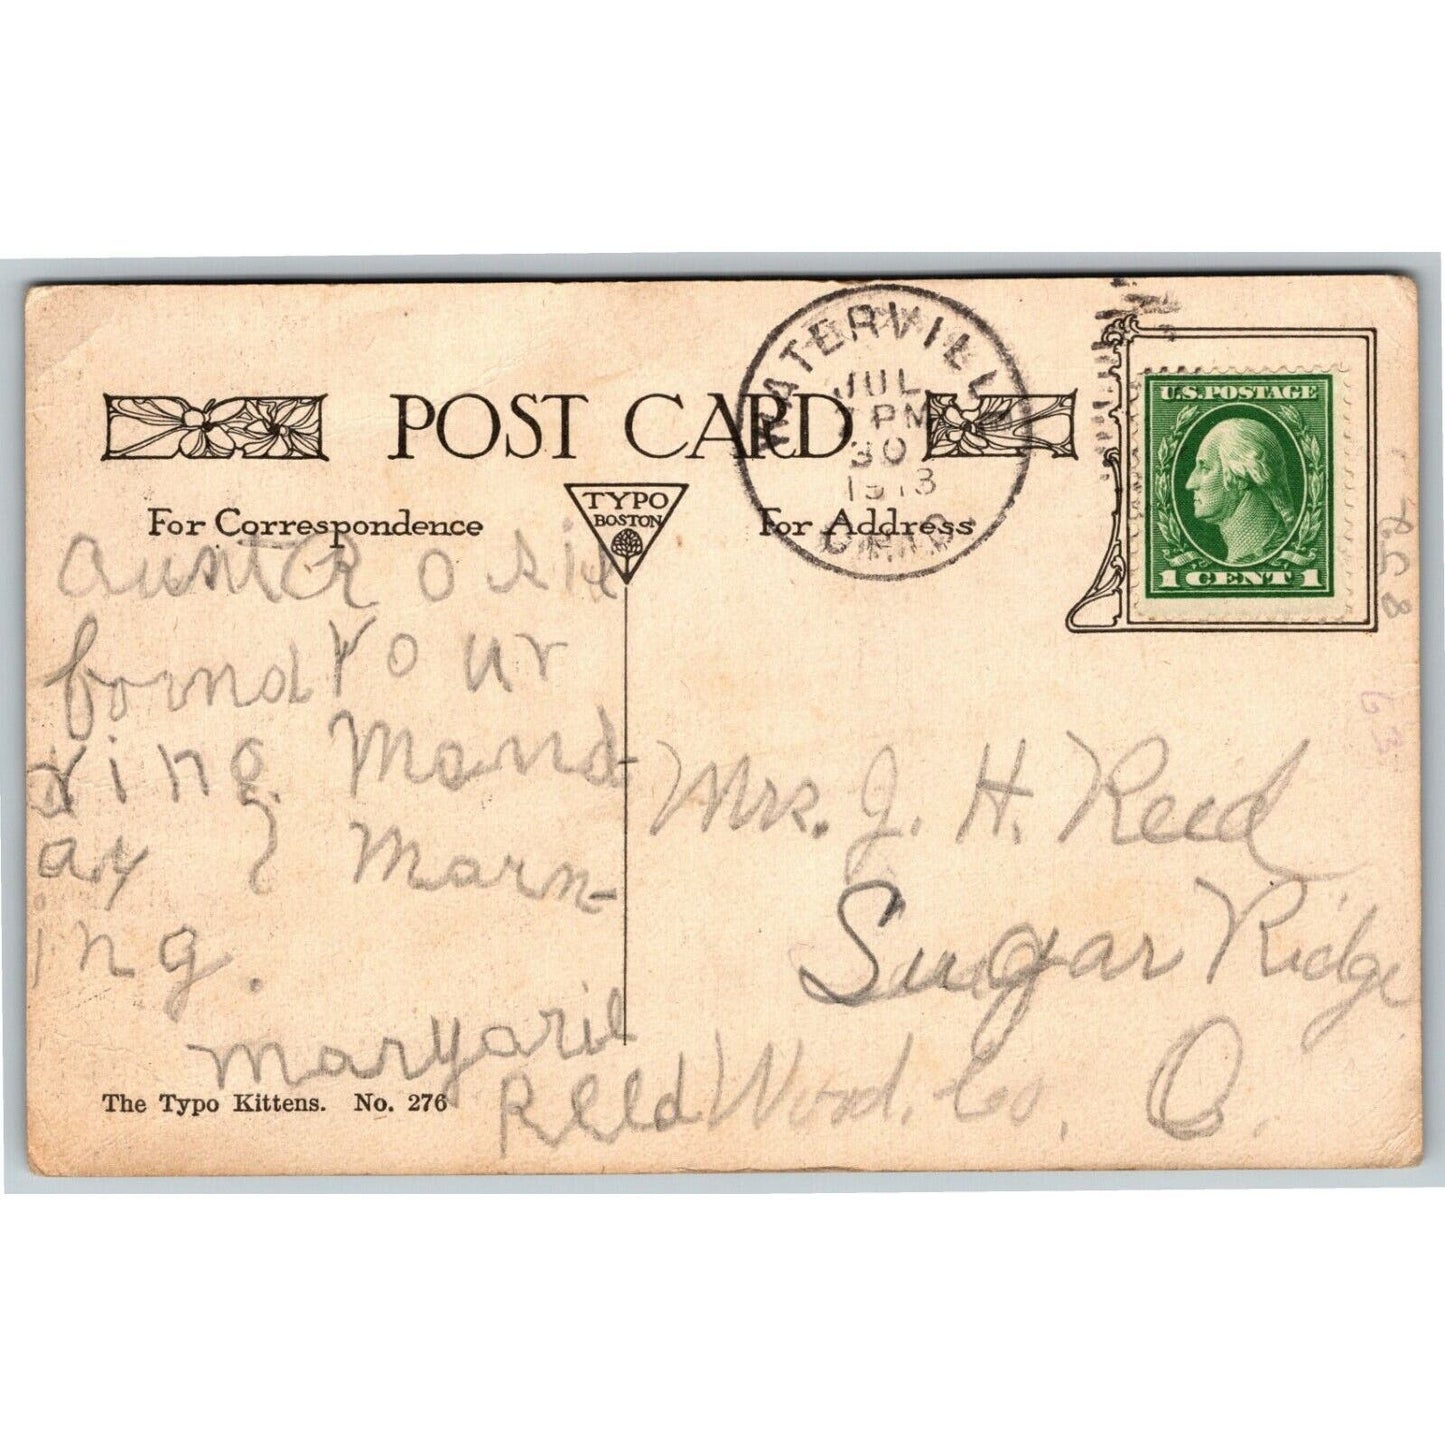 WATERVILLE
JUL
7 PM
30
1913
OHIO
U.S. POSTAGE
1 CENT 1
POST CARD
TYPO
BOSTON
For Correspondence
For Address
aunt Rosie
found Your
ring Mond-
ay Marn-
ing.
Maryarie
Reed
Mrs. J. H. Reed
Sugar Ridge
Wood Co, O.
The Typo Kittens. No. 276
63